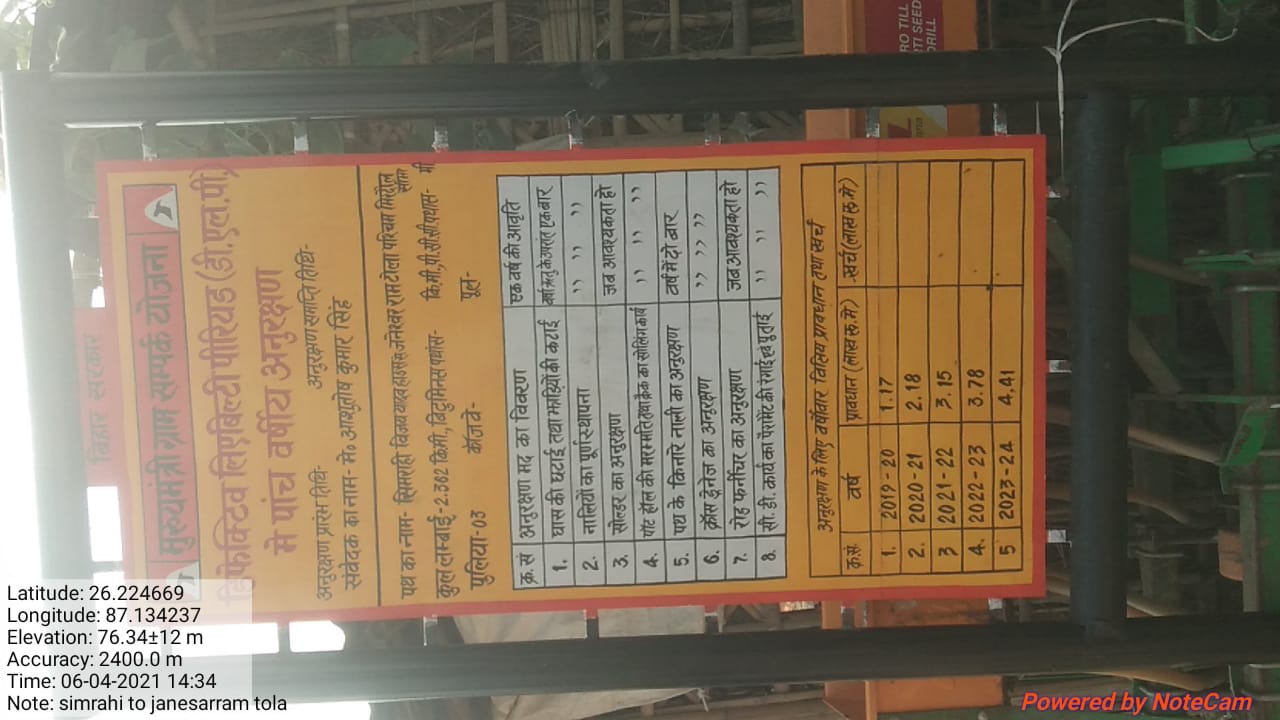 बिहार सरकार
मुख्यमंत्री ग्राम सम्पर्क योजना
डिफेक्टिव लिएबिल्टी पीरियड (डी.एल.पी.)
मे पांच वर्षीय अनुरक्षण
अनुरक्षण प्रारंभ तिथि- अनुरक्षण समाप्ति तिथि-
संवेदक का नाम- मे० आशुतोष कुमार सिंह
पथ का नाम- सिमराही विजय यादव हाउस से जनेश्वर राम टोला पश्चिम मिरचैल सीमा
कुल लम्बाई- 2.362 किमी., बिटुमिनस पथांस- कि.मी, पी.सी.सी पथांस- मी
पुलिया- 03 कॉजवे- पूल-
क्र.सं अनुरक्षण मद का विवरण एक वर्ष की आवृति
1. घास की छटाई तथा झाड़ियों की कटाई वर्षा ऋतु के उपरांत एक बार
2. नालियों का पूर्णस्थापना ,, ,, ,,
3. सोल्डर का अनुरक्षण जब आवश्यकता हो
4. पॉट हॉल की मरम्मति तथा क्रैक का सीलिंग कार्य ,, ,, ,,
5. पथ के किनारे नाली का अनुरक्षण वर्ष मे दो बार
6. क्रॉस ड्रेनेज का अनुरक्षण ,, ,, ,, ,,
7. रोड फर्नीचर का अनुरक्षण जब आवश्यकता हो
8. सी. डी. कार्य का पेरामेट की रंगाई एवं पुताई ,, ,, ,,
अनुरक्षण के लिए वर्षावार वित्तिय प्रावधान तथा खर्च
क्र.स. वर्ष प्रावधान (लाख रू. मे) खर्च (लाख रू. मे)
1. 2019-20 1.17
2. 2020-21 2.18
3 2021-22 3.15
4. 2022-23 3.78
5 2023-24 4.41
RO TILL
RTI SEED
DRILL
Latitude: 26.224669
Longitude: 87.134237
Elevation: 76.34±12 m
Accuracy: 2400.0 m
Time: 06-04-2021 14:34
Note: simrahi to janesarram tola
Powered by NoteCam